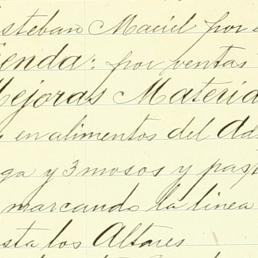 steban Maciel por
ienda: por ventas
Mejoras Materia
en alimentos del Ad
ga y 3 mosos y past
marcando la linea
sta los Altares